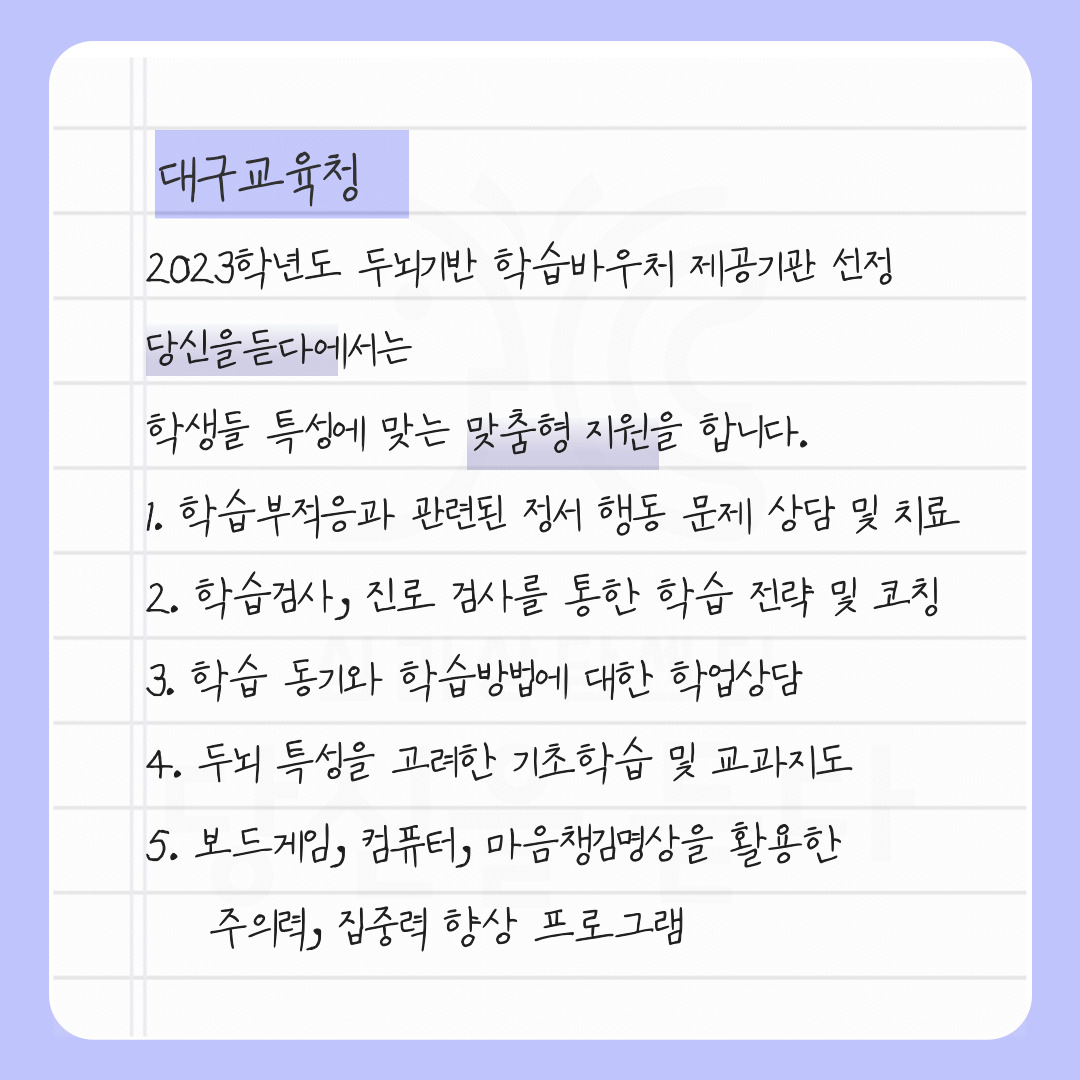 대구교육청
2023학년도 두뇌기반 학습바우처 제공기관 선정
당신을듣다에서는
학생들 특성에 맞는 맞춤형 지원을 합니다.
1. 학습부적응과 관련된 정서 행동 문제 상담 및 치료
2. 학습검사, 진로 검사를 통한 학습 전략 및 코칭
3. 학습 동기와 학습방법에 대한 학업상담
4. 두뇌 특성을 고려한 기초학습 및 교과지도
5. 보드게임, 컴퓨터, 마음챙김명상을 활용한
주의력, 집중력 향상 프로그램
심리상담센터
당신을 듣다